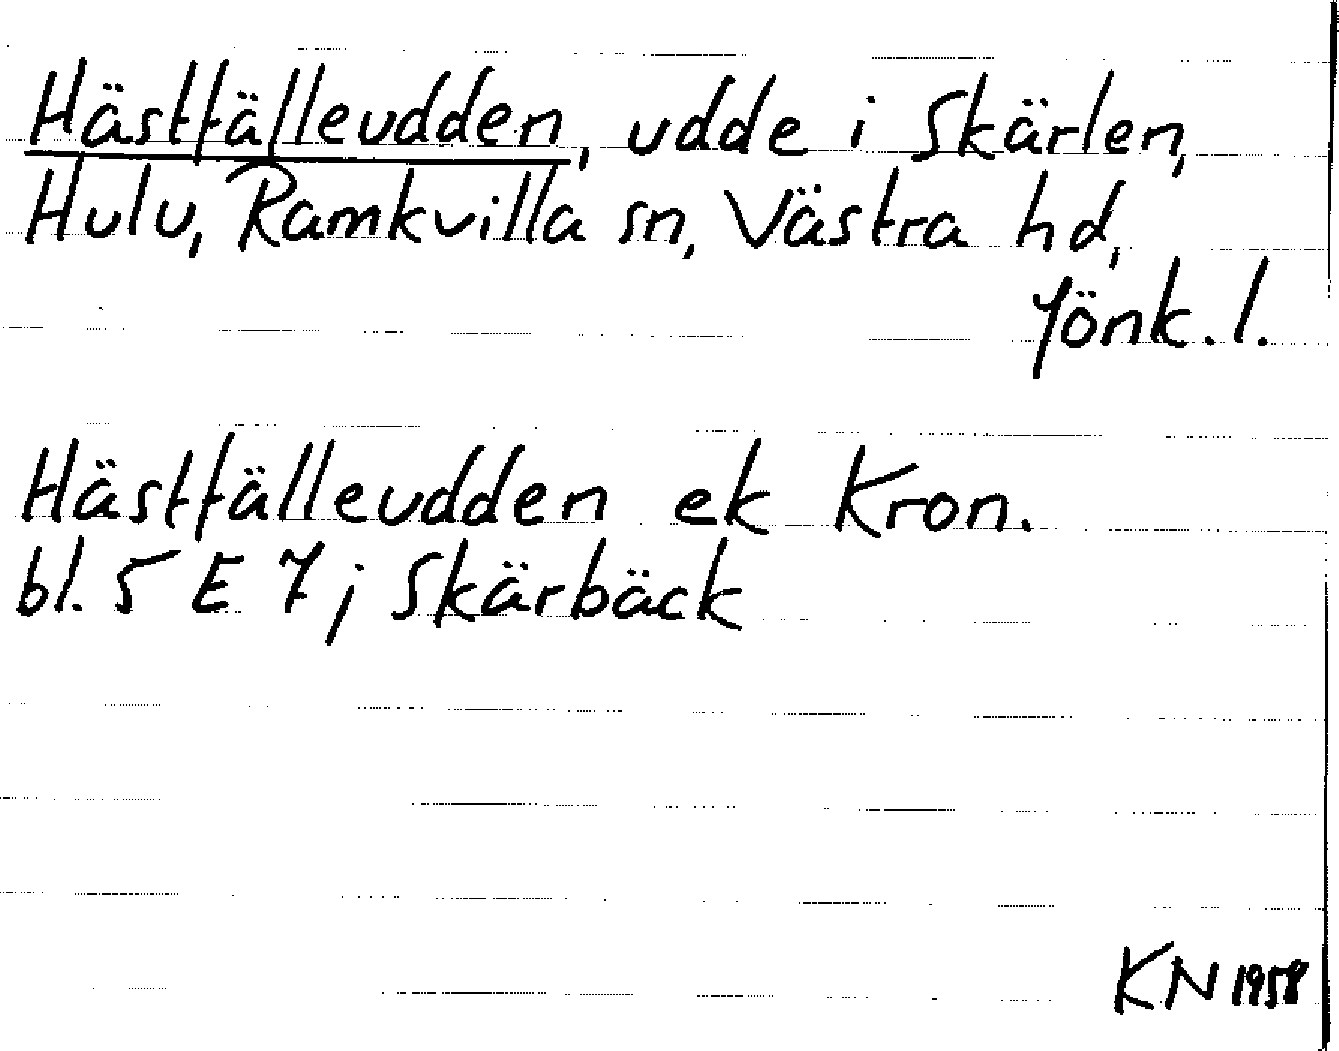 Hästfälleudden, udde i Skärlen,
Hulu, Ramkvilla sn, Västra hd,
Jönk. l.
Hästfälleudden ek Kron.
bl. 5 E 7; Skärbäck
KN 1958